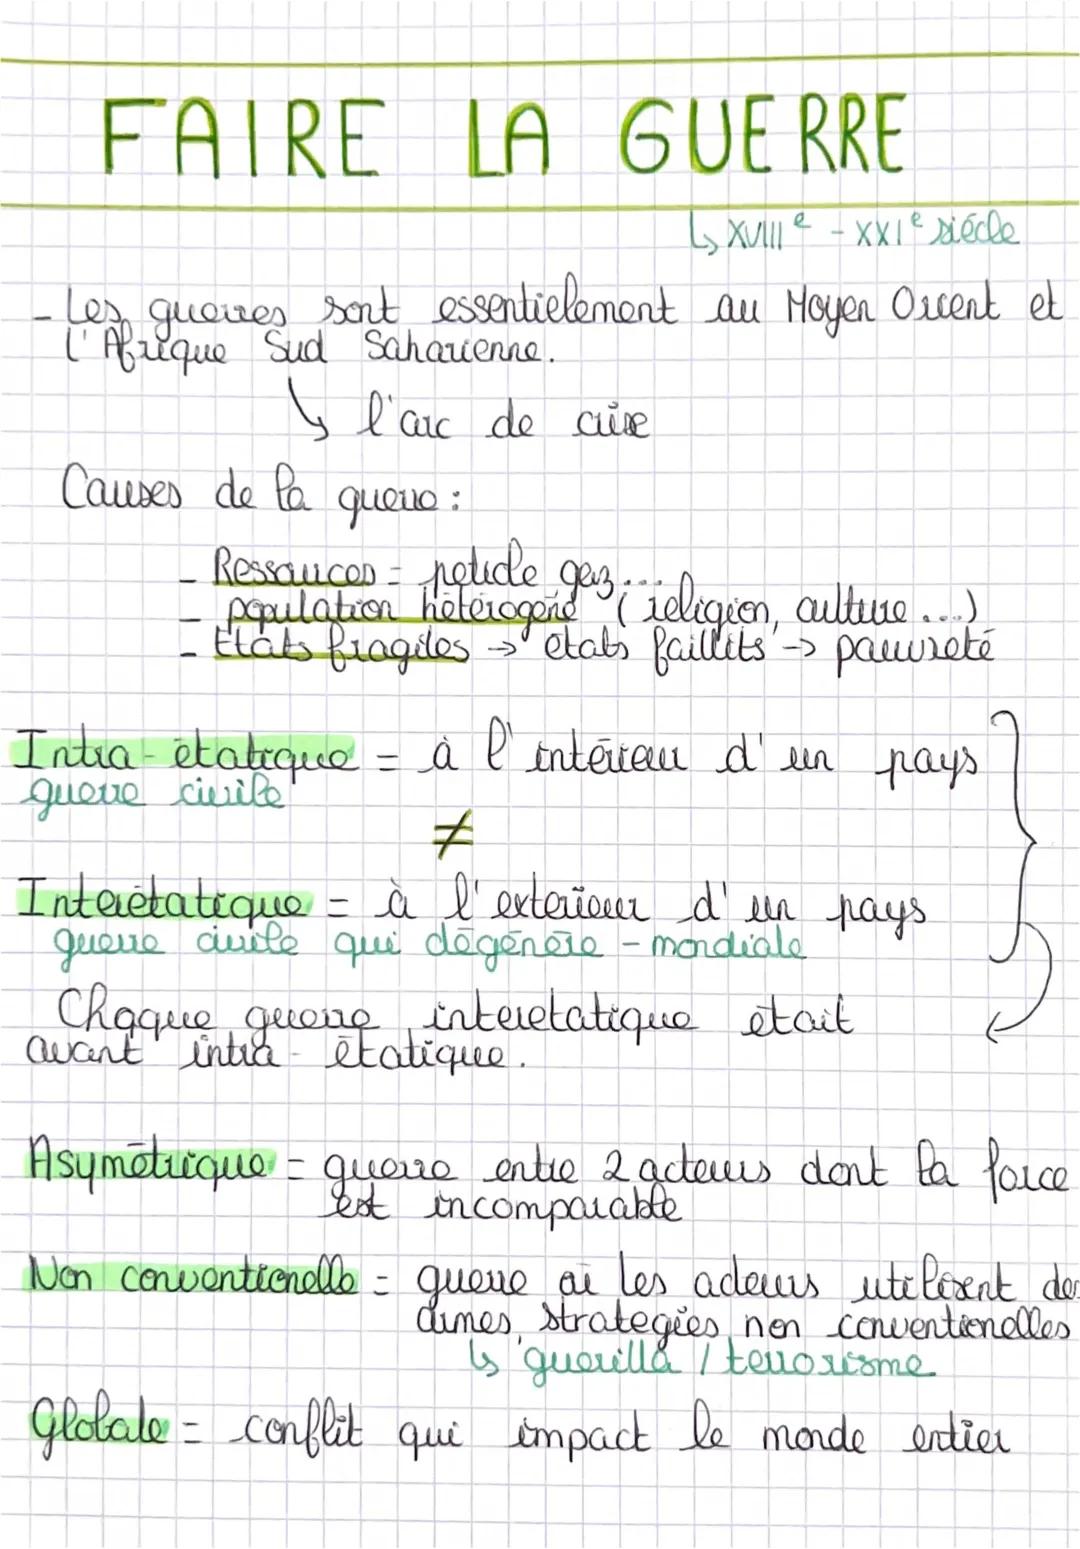 FAIRE LA GUERRE
↳ XVIIIe - XXIe siécle
- Les guerres sont essentielement au Moyen Orient et
l'Afrique Sud Saharienne.
↳ l'arc de crise
Causes de la guerre :
- Ressources = petrole gaz...
- population hétérogène (religion, culture...)
- Etats fragiles → etats faillits → pauvreté
Intra-étatique = à l'intérieur d'un pays
guerre civile
≠
Interétatique = à l'exterieur d'un pays
guerre civile qui dégénère - mondiale
Chaque guerre interetatique était
avant intra-étatique.
Asymétrique = guerre entre 2 acteurs dont la force
est incomparable
Non conventionelle = guerre où les acteurs utilisent des
armes, strategies non conventionelles
↳ guerilla / terrorisme
Globale = conflit qui impact le monde entier